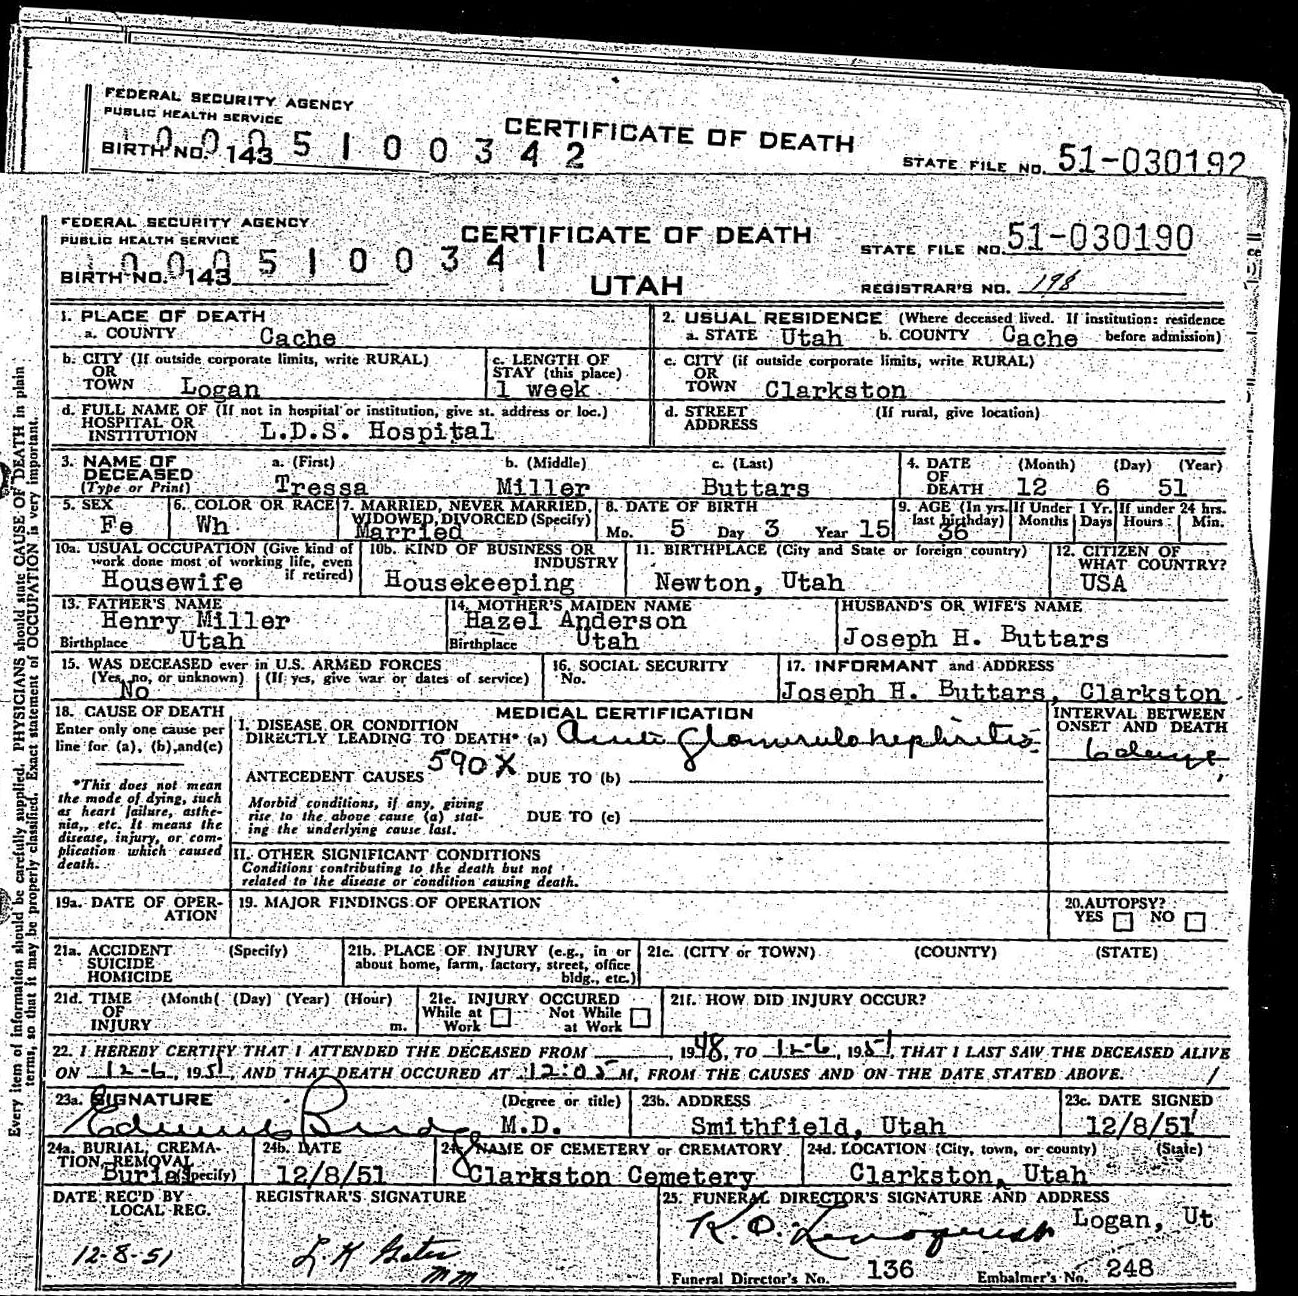 FEDERAL SECURITY AGENCY
PUBLIC HEALTH SERVICE
CERTIFICATE OF DEATH
BIRTH NO. 143
0005100342
STATE FILE NO. 51-030192
FEDERAL SECURITY AGENCY
PUBLIC HEALTH SERVICE
CERTIFICATE OF DEATH
STATE FILE NO. 51-030190
0005100341
BIRTH NO. 143
UTAH
REGISTRAR'S NO. 198
1. PLACE OF DEATH
a. COUNTY Cache
2. USUAL RESIDENCE (Where deceased lived. If institution: residence before admission)
a. STATE Utah b. COUNTY Cache
b. CITY (If outside corporate limits, write RURAL)
OR
TOWN Logan
c. LENGTH OF
STAY (this place)
1 week
c. CITY (if outside corporate limits, write RURAL)
OR
TOWN Clarkston
d. FULL NAME OF (If not in hospital or institution, give st. address or loc.)
HOSPITAL OR
INSTITUTION L.D.S. Hospital
d. STREET (If rural, give location)
ADDRESS
3. NAME OF
DECEASED
(Type or Print)
a. (First) b. (Middle) c. (Last)
Tressa Miller Buttars
4. DATE
OF
DEATH
(Month) (Day) (Year)
12 6 51
5. SEX
Fe
6. COLOR OR RACE
Wh
7. MARRIED, NEVER MARRIED,
WIDOWED, DIVORCED (Specify)
Married
8. DATE OF BIRTH
Mo. 5 Day 3 Year 15
9. AGE (In yrs.
last birthday)
36
If Under 1 Yr.
Months Days
If under 24 hrs.
Hours Min.
10a. USUAL OCCUPATION (Give kind of
work done most of working life, even
if retired)
Housewife
10b. KIND OF BUSINESS OR
INDUSTRY
Housekeeping
11. BIRTHPLACE (City and State or foreign country)
Newton, Utah
12. CITIZEN OF
WHAT COUNTRY?
USA
13. FATHER'S NAME
Henry Miller
Birthplace Utah
14. MOTHER'S MAIDEN NAME
Hazel Anderson
Birthplace Utah
HUSBAND'S OR WIFE'S NAME
Joseph H. Buttars
15. WAS DECEASED ever in U.S. ARMED FORCES
(Yes, no, or unknown) (If yes, give war or dates of service)
No
16. SOCIAL SECURITY
No.
17. INFORMANT and ADDRESS
Joseph H. Buttars, Clarkston
18. CAUSE OF DEATH
Enter only one cause per
line for (a), (b), and (c)
*This does not mean
the mode of dying, such
as heart failure, asthe-
nia, etc. It means the
disease, injury, or com-
plication which caused
death.
MEDICAL CERTIFICATION
I. DISEASE OR CONDITION
DIRECTLY LEADING TO DEATH* (a) Acute glomerulonephritis
590X
ANTECEDENT CAUSES DUE TO (b)
Morbid conditions, if any, giving
rise to the above cause (a) stat-
ing the underlying cause last.
DUE TO (c)
II. OTHER SIGNIFICANT CONDITIONS
Conditions contributing to the death but not
related to the disease or condition causing death.
INTERVAL BETWEEN
ONSET AND DEATH
6 days
19a. DATE OF OPER-
ATION
19. MAJOR FINDINGS OF OPERATION
20. AUTOPSY?
YES NO
21a. ACCIDENT (Specify)
SUICIDE
HOMICIDE
21b. PLACE OF INJURY (e.g., in or
about home, farm, factory, street, office
bldg., etc.)
21c. (CITY or TOWN) (COUNTY) (STATE)
21d. TIME (Month( (Day) (Year) (Hour)
OF
INJURY m.
21e. INJURY OCCURED
While at Work Not While at Work
21f. HOW DID INJURY OCCUR?
22. I HEREBY CERTIFY THAT I ATTENDED THE DECEASED FROM , 1948, TO 12-6, 1951, THAT I LAST SAW THE DECEASED ALIVE
ON 12-6, 1951, AND THAT DEATH OCCURED AT 12:05 M, FROM THE CAUSES AND ON THE DATE STATED ABOVE.
23a. SIGNATURE (Degree or title)
M.D.
23b. ADDRESS
Smithfield, Utah
23c. DATE SIGNED
12/8/51
24a. BURIAL, CREMA-
TION, REMOVAL
(Specify)
Burial
24b. DATE
12/8/51
24c. NAME OF CEMETERY or CREMATORY
Clarkston Cemetery
24d. LOCATION (City, town, or county) (State)
Clarkston, Utah
DATE REC'D BY
LOCAL REG.
12-8-51
REGISTRAR'S SIGNATURE
25. FUNERAL DIRECTOR'S SIGNATURE AND ADDRESS
Logan, Ut
Funeral Director's No. 136 Embalmer's No. 248
Every item of information should be carefully supplied. PHYSICIANS should state CAUSE OF DEATH in plain
terms, so that it may be properly classified. Exact statement of OCCUPATION is very important.